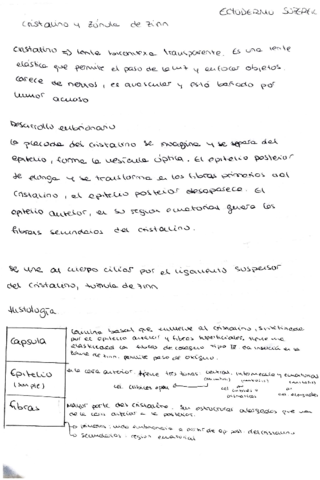 ECTODERMO SUPER
Cristalino y Zónula de Zinn
Cristalino => lente biconvexa transparente. Es una lente
elástica que permite el paso de la luz y enfocar objetos
carece de nervios, es avascular y está bañado por
humor acuoso
Desarrollo embrionario
la placoda del cristalino se invagina y se separa del
epitelio, forma la vesícula óptica. El epitelio posterior
se elonga y se transforma en las fibras primarias del
cristalino, el epitelio posterior desaparece. El
epitelio anterior, en su región ecuatorial genera las
fibras secundarias del cristalino.
Se une al cuerpo ciliar por el ligamento suspensor
del cristalino, zónula de Zinn
Histología
Cápsula
lámina basal que envuelve al cristalino, sintetizada
por el epitelio anterior y fibras superficiales, tiene
elasticidad colágeno tipo IV inserción de la
zónula de Zinn. permite paso de oxígeno.
Epitelio
(simple)
la cara anterior tiene tres zonas central, intermedia y ecuatorial
cel.
cel. alargadas
Fibras
Mayor parte del cristalino. Son estructuras alargadas que van
de la cara anterior a la posterior.
primarias: a partir de ep post. del cristalino
secundarias: región ecuatorial